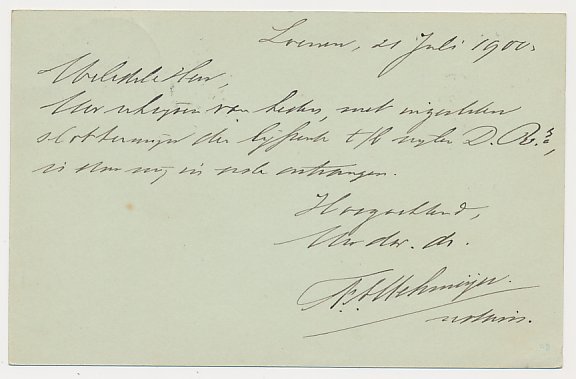 Loenen, 21 Juli 1900.
WelEdele Heer,
Uw schrijven van heden, met ingesloten
der lijfrente t/b D. R.
is door mij in orde ontvangen.
Hoogachtend,
Uw dw. dr.
notaris.